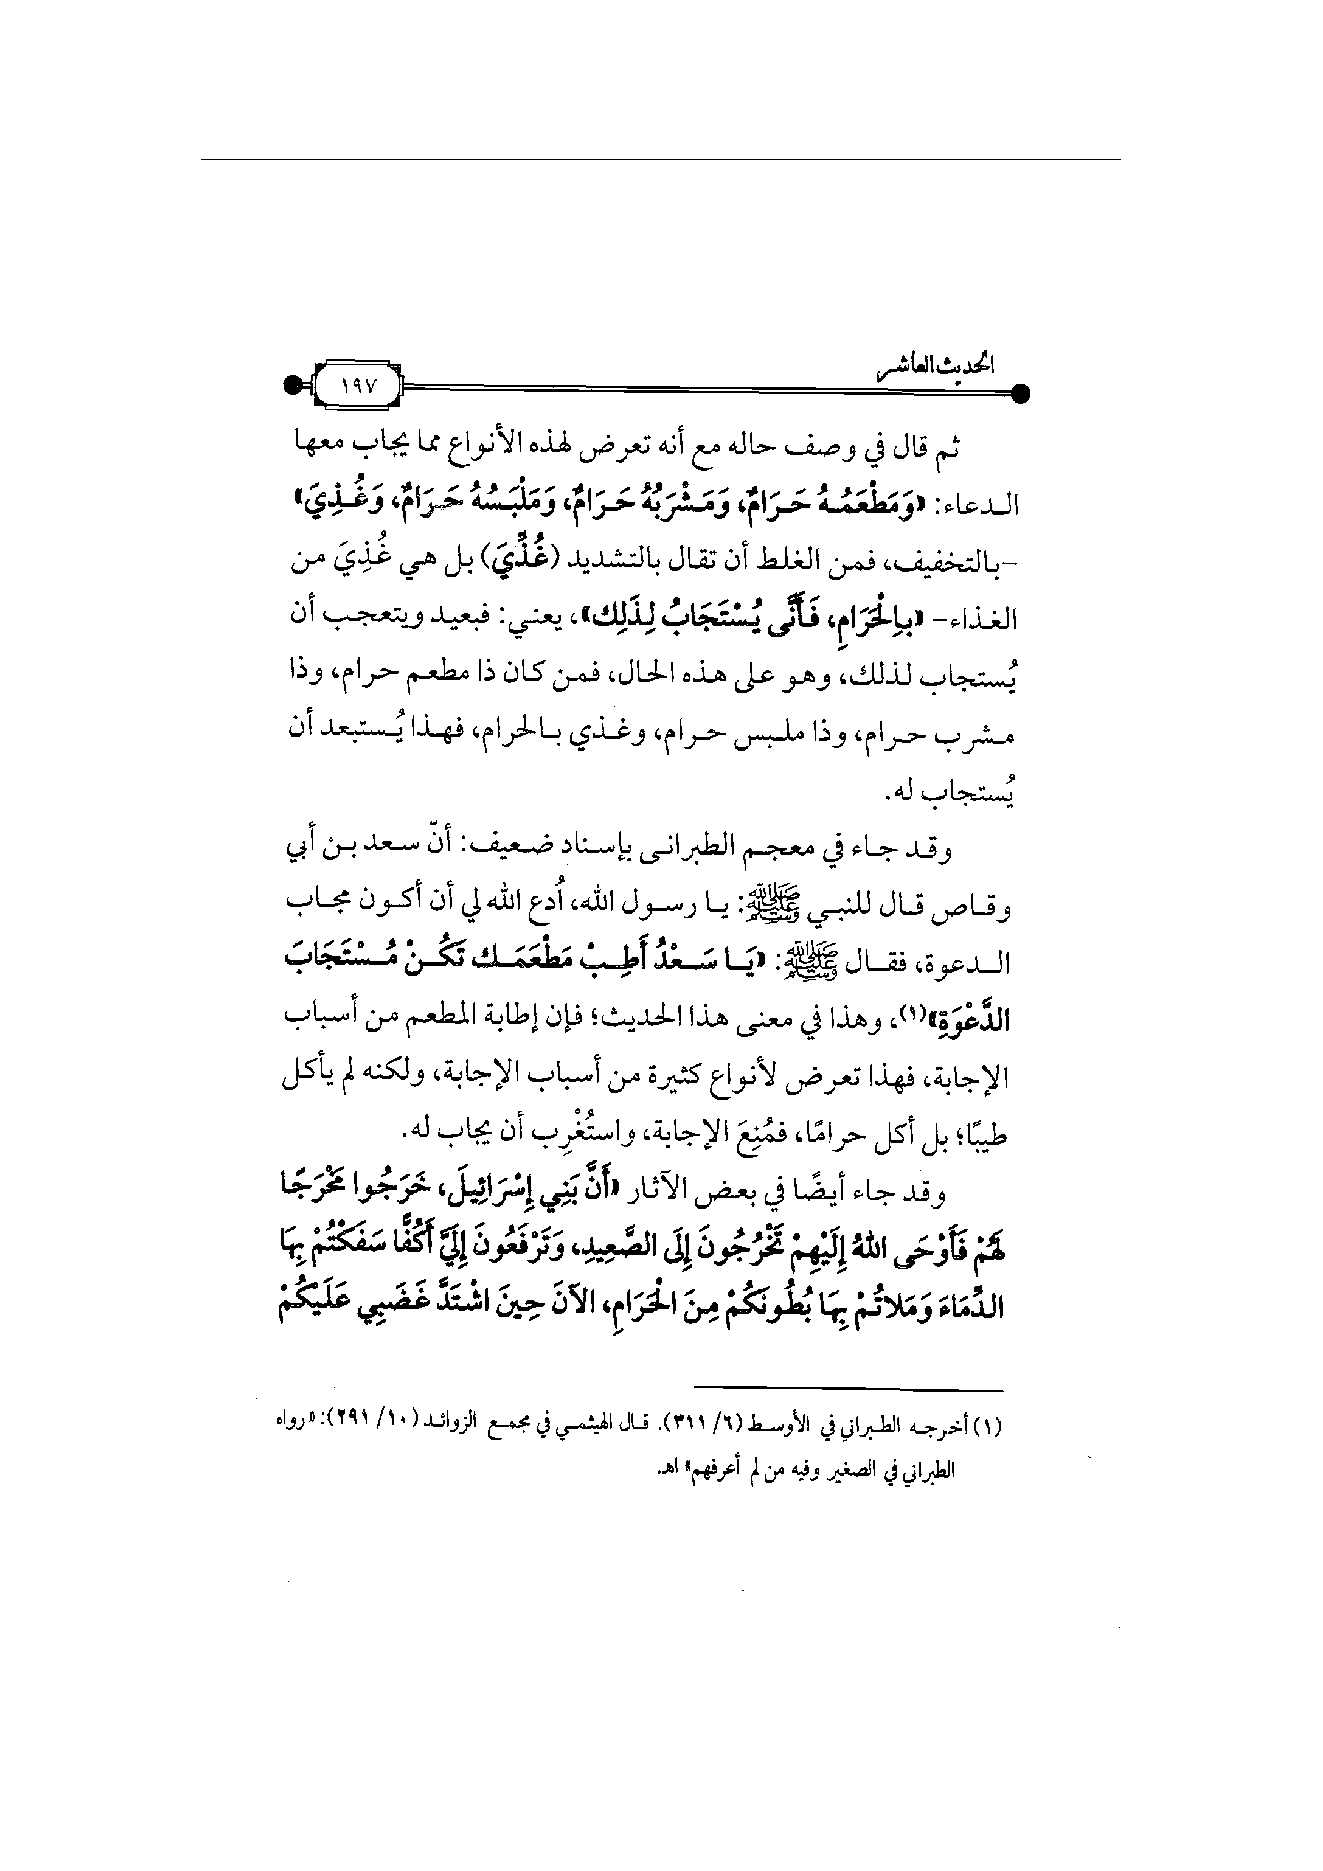 الحديث العاشر
١٩٧
ثم قال في وصف حاله مع أنه تعرض لهذه الأنواع مما يجاب معها
الدعاء: «وَمَطْعَمُهُ حَرَامٌ، وَمَشْرَبُهُ حَرَامٌ، وَمَلْبَسُهُ حَرَامٌ، وَغُذِيَ»
-بالتخفيف، فمن الغلط أن تقال بالتشديد (غُذِّيَ) بل هي غُذِيَ من
الغذاء- «بِالْحَرَامِ، فَأَنَّى يُسْتَجَابُ لِذَلِكَ»، يعني: فبعيد ويتعجب أن
يُستجاب لذلك، وهو على هذه الحال، فمن كان ذا مطعم حرام، وذا
مشرب حرام، وذا ملبس حرام، وغذي بالحرام، فهذا يُستبعد أن
يُستجاب له.
وقد جاء في معجم الطبراني بإسناد ضعيف: أنّ سعد بن أبي
وقاص قال للنبي ﷺ: يا رسول الله، اُدع الله لي أن أكون مجاب
الدعوة، فقال ﷺ: «يَا سَعْدُ أَطِبْ مَطْعَمَك تَكُنْ مُسْتَجَابَ
الدَّعْوَةِ»(١)، وهذا في معنى هذا الحديث؛ فإن إطابة المطعم من أسباب
الإجابة، فهذا تعرض لأنواع كثيرة من أسباب الإجابة، ولكنه لم يأكل
طيبًا؛ بل أكل حرامًا، فمُنِعَ الإجابة، واستُغْرِب أن يجاب له.
وقد جاء أيضًا في بعض الآثار «أَنَّ بَنِي إِسْرَائِيلَ، خَرَجُوا مَخْرَجًا
لَهُمْ فَأَوْحَى اللهُ إِلَيْهِمْ تَخْرُجُونَ إِلَى الصَّعِيدِ، وَتَرْفَعُونَ إِلَيَّ أَكُفًّا سَفَكْتُمْ بِهَا
الدِّمَاءَ وَمَلاتُمْ بِهَا بُطُونَكُمْ مِنَ الْحَرَامِ، الآنَ حِينَ اشْتَدَّ غَضَبِي عَلَيْكُمْ
(١) أخرجه الطبراني في الأوسط (٦/ ٣١١). قال الهيثمي في مجمع الزوائد (١٠/ ٢٩١): «رواه
الطبراني في الصغير وفيه من لم أعرفهم» اهـ.